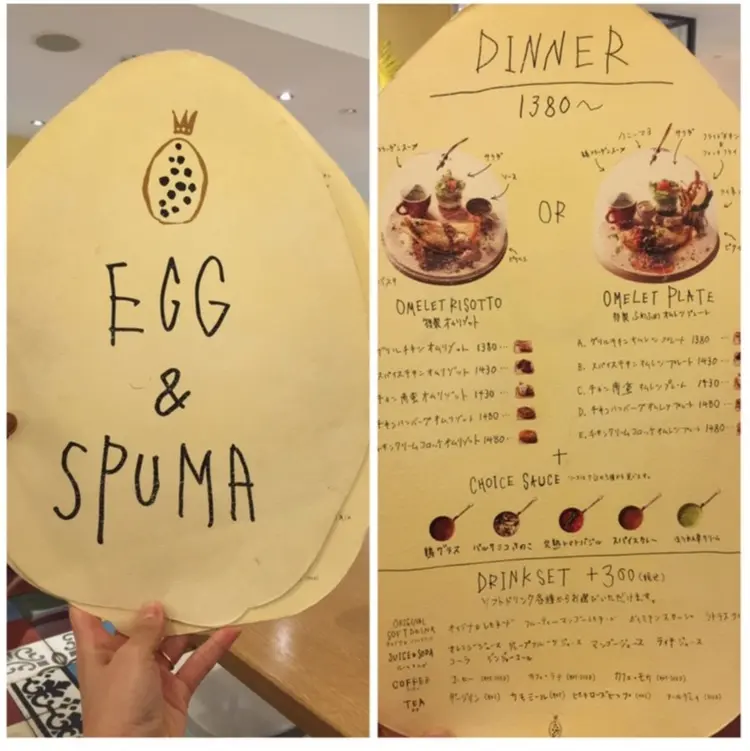 EGG
&
SPUMA
DINNER
1380〜
サラダ
ソース
OR
ハニーマヨ
サラダ
OMELET RISOTTO
特製 オムリゾット
グリルチキン オムリゾット 1380
スパイスチキン オムリゾット 1430
チキン南蛮 オムリゾット 1430
チキンハンバーグ オムリゾット 1480
チキンクリームコロッケ オムリゾット 1480
OMELET PLATE
特製 ふわふわ オムレツプレート
A. グリルチキン オムレツプレート 1380
B. スパイスチキン オムレツプレート 1430
C. チキン南蛮 オムレツプレート 1430
D. チキンハンバーグ オムレツプレート 1480
E. チキンクリームコロッケ オムレツプレート 1480
+
CHOICE SAUCE
鶏グラス
完熟トマトバジル
スパイスカレー
ほうれん草クリーム
DRINKSET +300(税込)
ソフトドリンク各種からお選びいただけます。
ORIGINAL
SOFT DRINK
JUICE & SODA
オレンジジュース グレープフルーツジュース マンゴージュース ライチジュース
コーラ ジンジャーエール
COFFEE
コーヒー カフェ・ラテ カフェ・モカ
TEA
ダージリン カモミール アールグレイ